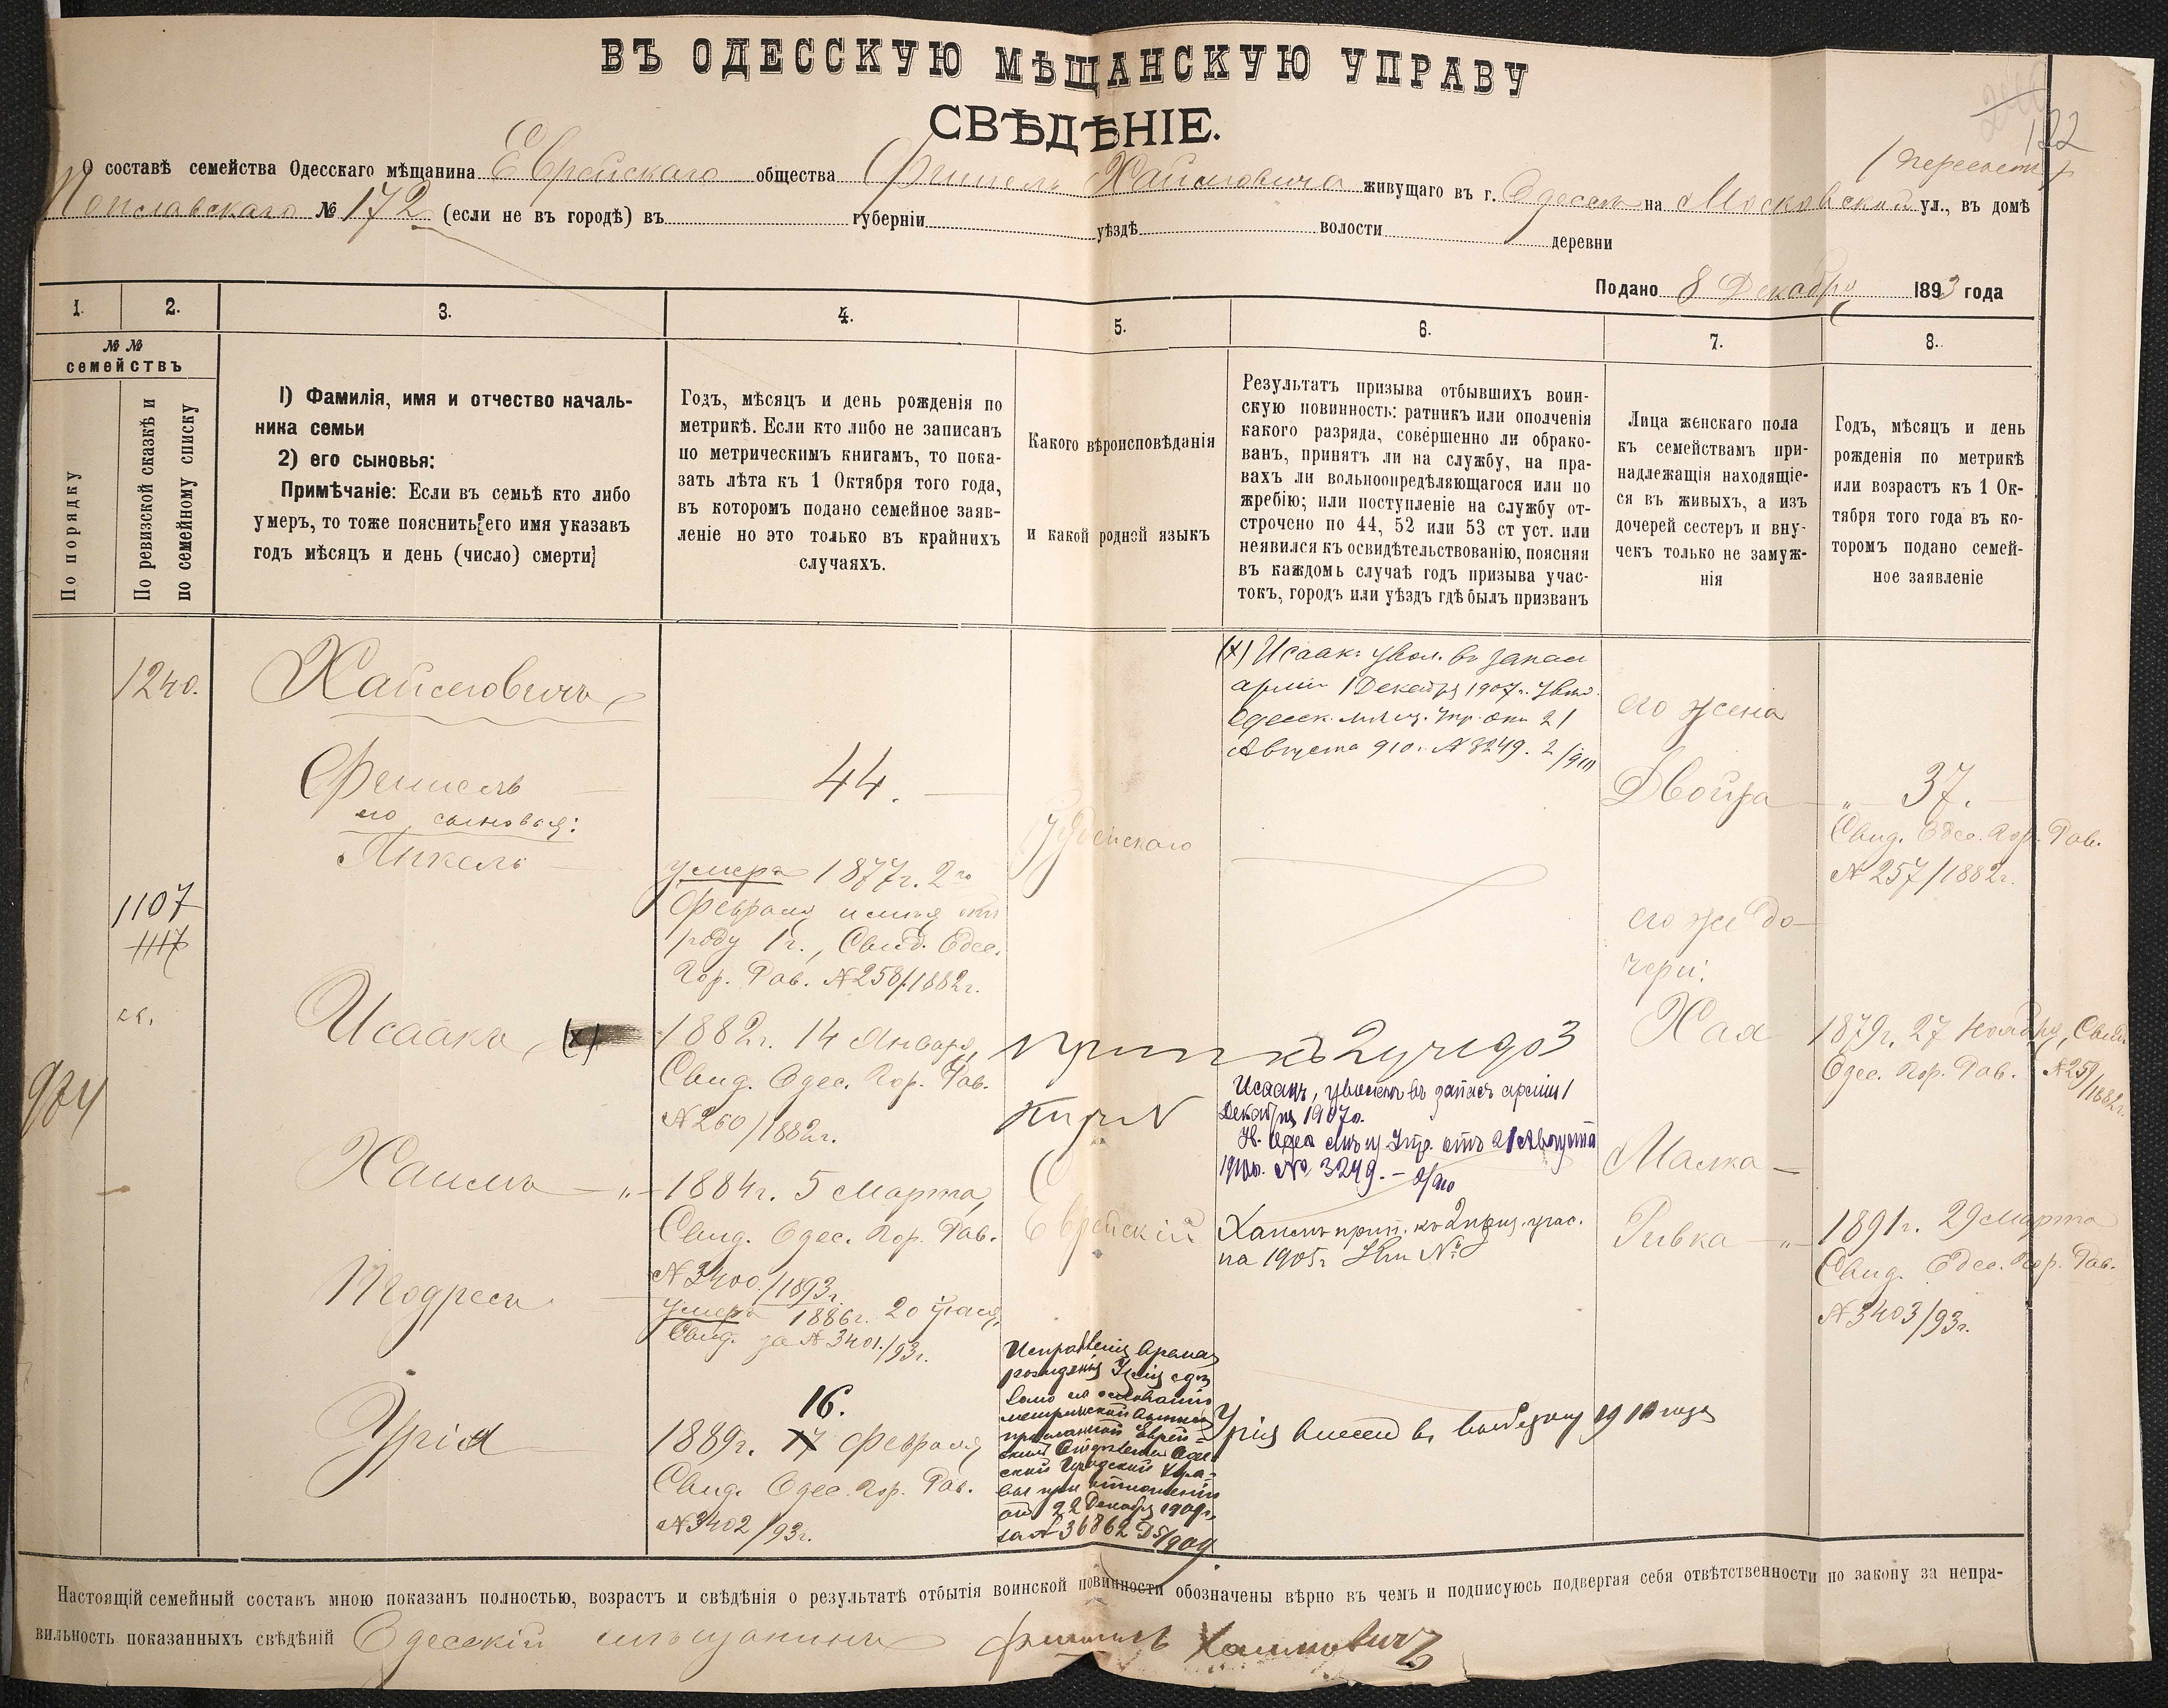 ВЪ ОДЕССКУЮ МѢЩАНСКУЮ УПРАВУ
СВѢДѢНІЕ.
122
О составѣ семейства Одесскаго мѣщанина Еврейскаго общества Фишель Хаимовича живущаго въ г. Одессѣ на Московской ул., въ домѣ
№ 172 (если не въ городѣ) въ губерніи уѣздѣ волости деревни
Подано 8 Декабря 1893 года
1. 2. 3. 4. 5. 6. 7. 8.
№ №
семействъ
По порядку
По ревизской сказкѣ и
по семейному списку
1) Фамилія, имя и отчество началь-
ника семьи
2) его сыновья:
Примѣчаніе: Если въ семьѣ кто либо
умеръ, то тоже пояснить его имя указавъ
годъ мѣсяцъ и день (число) смерти
Годъ, мѣсяцъ и день рожденія по
метрикѣ. Если кто либо не записанъ
по метрическимъ книгамъ, то пока-
зать лѣта къ 1 Октября того года,
въ которомъ подано семейное заяв-
леніе но это только въ крайнихъ
случаяхъ.
Какого вѣроисповѣданія
и какой родной языкъ
Результатъ призыва отбывшихъ воин-
скую повинность: ратникъ или ополченія
какого разряда, совершенно ли обрако-
ванъ, принятъ ли на службу, на пра-
вахъ ли вольноопредѣляющагося или по
жребію; или поступленіе на службу от-
строчено по 44, 52 или 53 ст уст. или
неявился къ освидѣтельствованію, поясняя
въ каждомъ случаѣ годъ призыва учас-
токъ, городъ или уѣздъ гдѣ былъ призванъ
Лица женскаго пола
къ семействамъ при-
надлежащія находящіе-
ся въ живыхъ, а изъ
дочерей сестеръ и вну-
чекъ только не замуж-
нія
Годъ, мѣсяцъ и день
рожденія по метрикѣ
или возрастъ къ 1 Ок-
тября того года въ ко-
торомъ подано семей-
ное заявленіе
1240.
Хаимовичъ
Фишель
его сыновья:
Янкель
1107
1117
974
Исаакъ (х)
Хаимъ
Мордхе
Урія
44.
умеръ 1877г. 2го
Февраля имѣя отъ
роду 1 г., Свид. Одес.
Гор. Рав. №258/1882г.
1882г. 14 Января,
Свид. Одес. Гор. Рав.
№260/1882г.
1884г. 5 Марта,
Свид. Одес. Гор. Рав.
№3400/1893г.
умеръ 1886г. 20
Свид. за №3401/93г.
16.
1889г. 17 Февраля
Свид. Одес. Гор. Рав.
№3402/93г.
Іудейскаго
Еврейскій
Исправленіе времени
рожденія Уріи сдѣ
лано на основаніи
метрической выписи
присланной Еврей
скимъ Отдѣленіемъ Одес
ской Городской Упра-
вы при отношеніи
отъ 22 Декабря 1909г.
за № 36862 1909
(х) Исаакъ увол. въ запасъ
арміи 1 Декабря 1907г. Увѣд.
Одесск. мѣщ. Упр. отъ 21
Августа 910г. №3249. 2/910
прип къ 2 уч
Исаакъ, уволенъ въ запасъ арміи 1
Декабря 1907г.
Ув. Одес мѣщ Упр. отъ 21 Августа
1910г. № 3249.
Хаимъ прип. къ 2 приз. учас.
на 1905г
Урія внесенъ въ 1910 года
его жена
Двойра
его же до
чери:
Хая
Малка
Ривка
37.
Свид. Одес. Гор. Рав.
№257/1882г.
1879г. 27 Ноября, Свид.
Одес. Гор. Рав. №259/1882г.
1891г. 29 Марта
Свид. Одес. Гор. Рав.
№3403/93г.
Настоящій семейный составъ мною показанъ полностью, возрастъ и свѣдѣнія о результатѣ отбытія воинской повинности обозначены вѣрно въ чемъ и подписуюсь подвергая себя отвѣтственности по закону за непра-
вильность показанныхъ свѣдѣній Одесскій мѣщанинъ Фишель Хаимовичъ